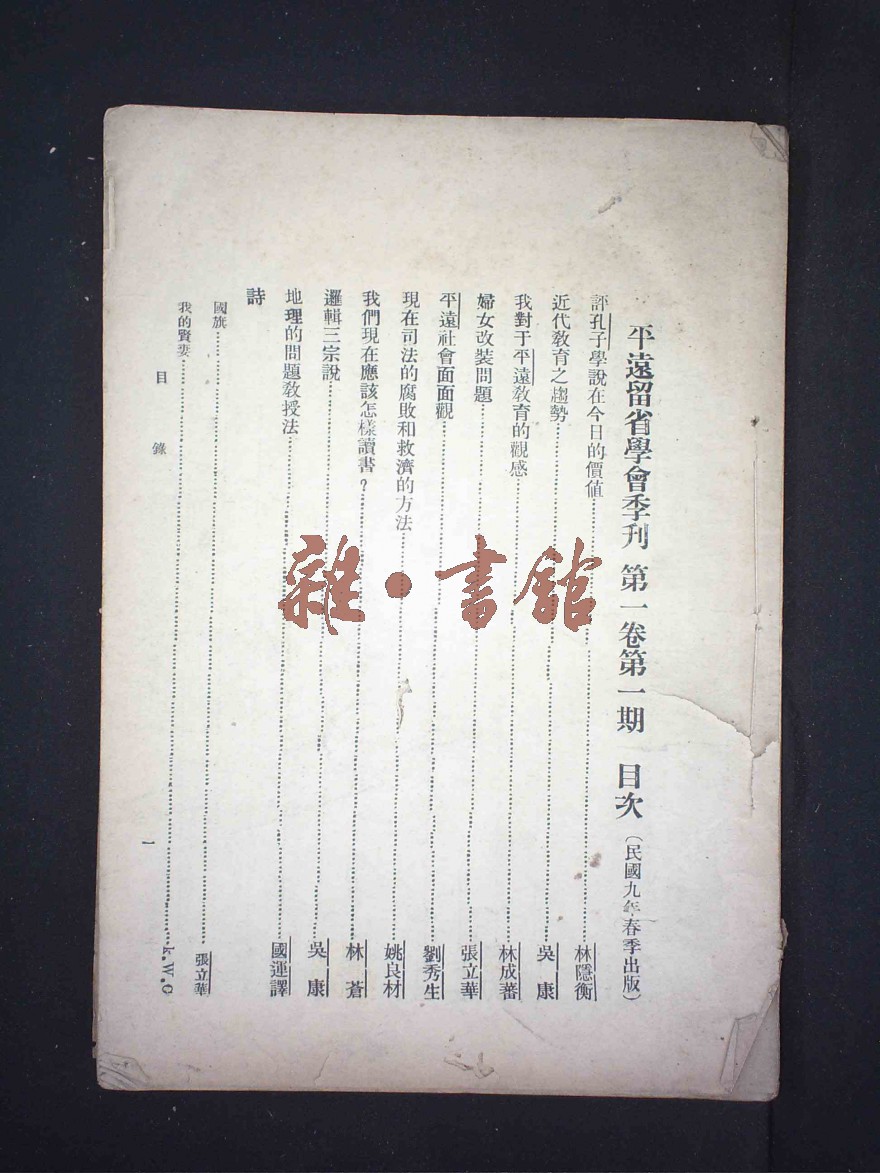 平遠留省學會季刊 第一卷第一期 目次(民國九年春季出版)
評孔子學說在今日的價值……林隱衡
近代敎育之趨勢……吳康
我對于平遠敎育的觀感……林成蕃
婦女改裝問題……張立華
平遠社會面面觀……劉秀生
現在司法的腐敗和救濟的方法……姚良材
我們現在應該怎樣讀書?……林蒼
邏輯三宗說……吳康
地理的問題敎授法……國運譯
詩
國旗……張立華
我的賢妻……k.W.C
目錄
一
雜·書館